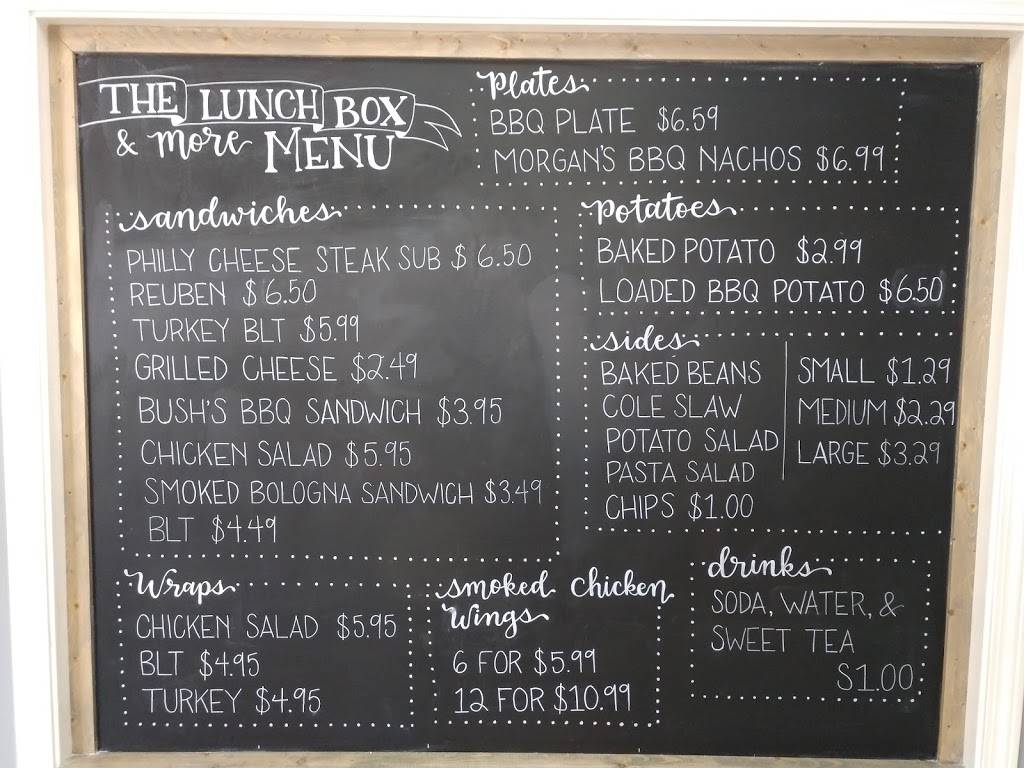 THE LUNCH BOX
& more MENU
Plates
BBQ PLATE $6.59
MORGAN'S BBQ NACHOS $6.99
sandwiches
PHILLY CHEESE STEAK SUB $6.50
REUBEN $6.50
TURKEY BLT $5.99
GRILLED CHEESE $2.49
BUSH'S BBQ SANDWICH $3.95
CHICKEN SALAD $5.95
SMOKED BOLOGNA SANDWICH $3.49
BLT $4.49
Potatoes
BAKED POTATO $2.99
LOADED BBQ POTATO $6.50
sides
BAKED BEANS
COLE SLAW
POTATO SALAD
PASTA SALAD
CHIPS $1.00
SMALL $1.29
MEDIUM $2.29
LARGE $3.29
Wraps
CHICKEN SALAD $5.95
BLT $4.95
TURKEY $4.95
smoked chicken
wings
6 FOR $5.99
12 FOR $10.99
drinks
SODA, WATER, &
SWEET TEA
$1.00